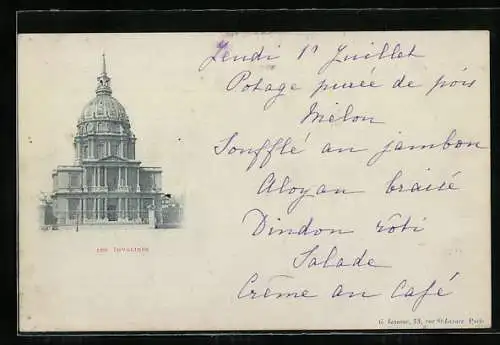 Jeudi 1r Juillet
Potage purée de pois
Mélon
Soufflé au jambon
Aloyau braisé
Dindon rôti
Salade
Crème au café
LES INVALIDES
75, rue St-Lazare Paris